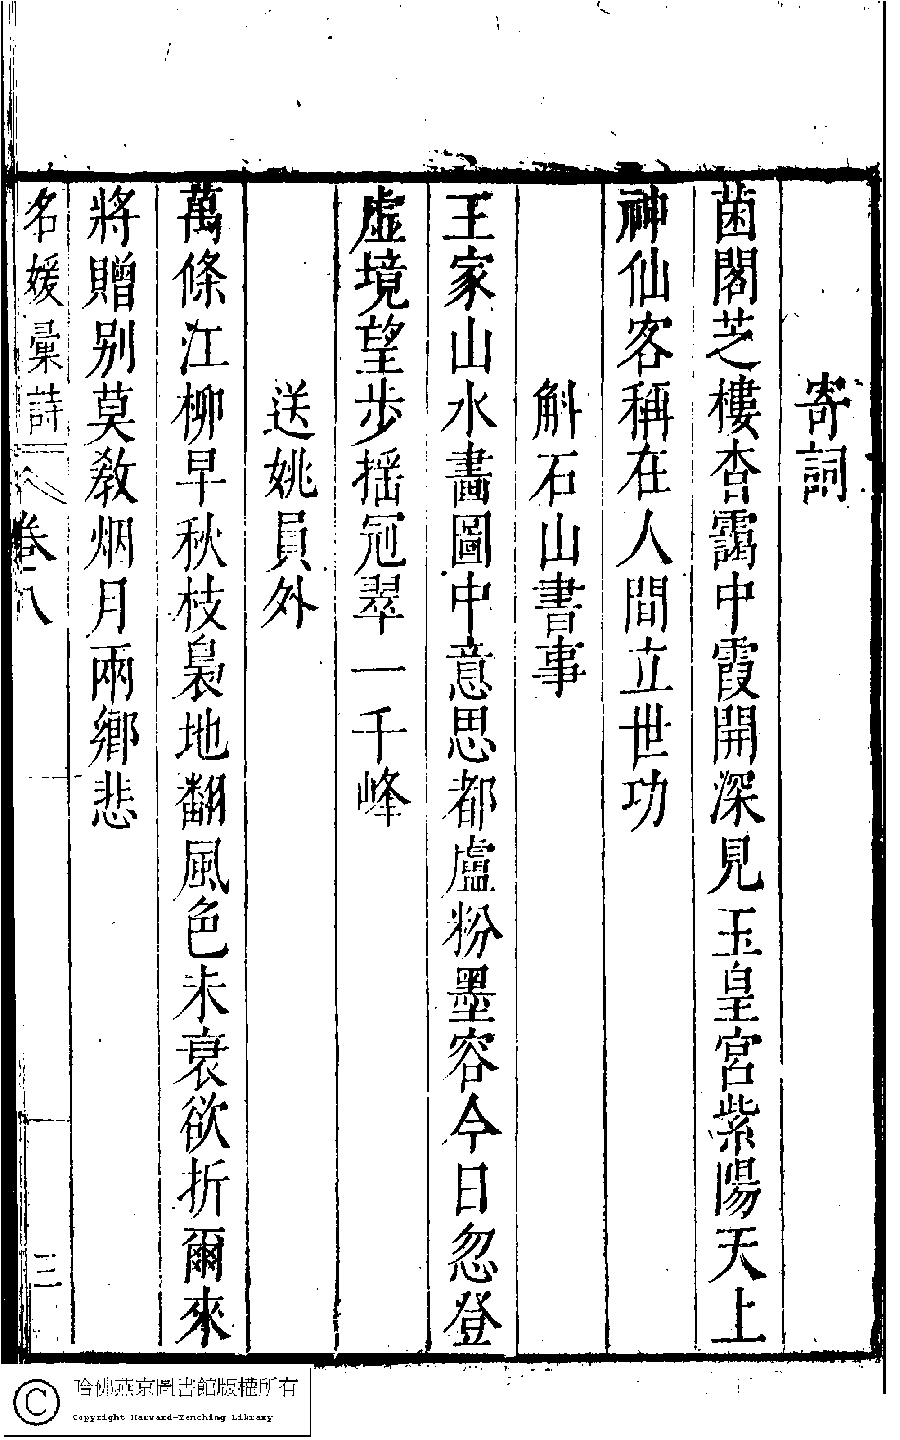 寄詞
菌閣芝樓杳靄中霞開深見玉皇宮紫陽天上
神仙客稱在人間立世功
斛石山書事
王家山水畵圖中意思都盧粉墨容今日忽登
虛境望步揺冠翠一千峰
送姚員外
萬條江柳早秋枝裊地翻風色未衰欲折爾來
將贈別莫教烟月兩鄉悲
名媛彙詩
卷八
三
哈佛燕京圖書館版權所有
Copyright Harvard-Yenching Library